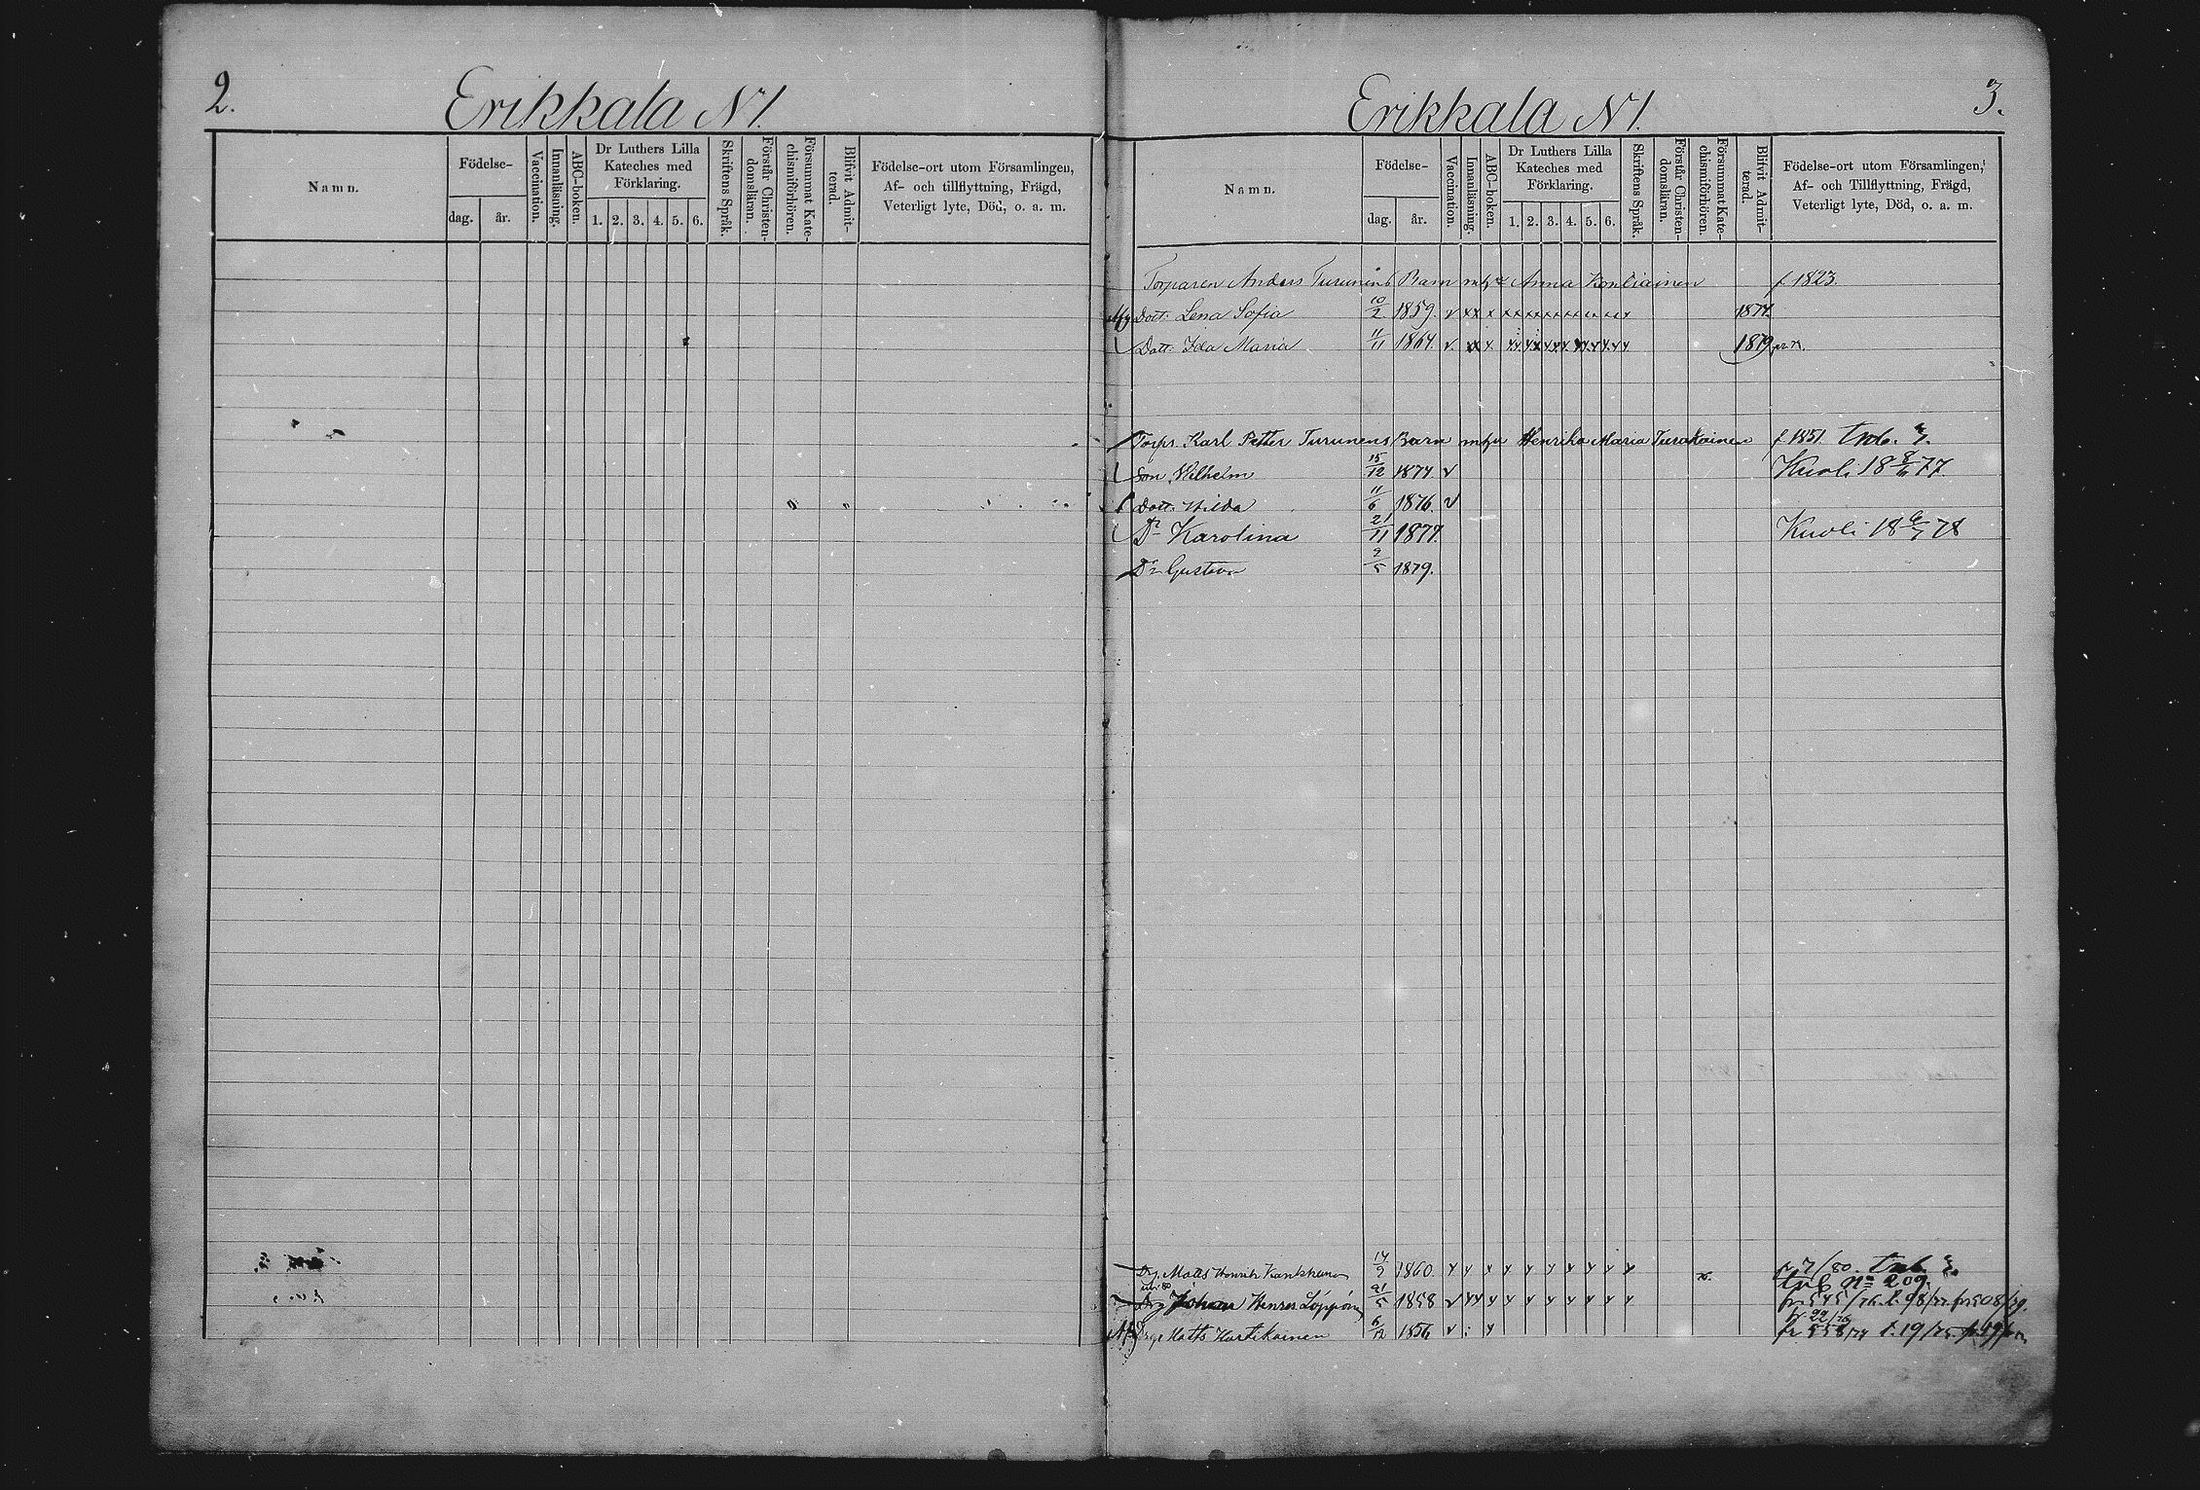 2.
Erikkala N1.
Namn.
Födelse-
dag.
år.
Vaccination.
Innanläsning.
ABC-boken.
Dr Luthers Lilla
Kateches med
Förklaring.
1. 2. 3. 4. 5. 6.
Skriftens Språk.
Förstår Christen-
domsläran.
Försummat Kate-
chismiförhören.
Blifvit Admit-
terad.
Födelse-ort utom Församlingen,
Af- och tillflyttning, Frägd,
Veterligt lyte, Död, o. a. m.
3.
Erikkala N1.
Namn.
Födelse-
dag.
år.
Vaccination.
Innanläsning.
ABC-boken.
Dr Luthers Lilla
Kateches med
Förklaring.
1. 2. 3. 4. 5. 6.
Skriftens Språk.
Förstår Christen-
domsläran.
Försummat Kate-
chismiförhören.
Blifvit Admit-
terad.
Födelse-ort utom Församlingen,
Af- och Tillflyttning, Frägd,
Veterligt lyte, Död, o. a. m.
Torparen Anders Turunens Barn Anna f. 1823.
Dott. Lena Sofia 10/2 1859. v xx x 1877.
Dott. Ida Maria 11/11 1864. v. xx x 1879
Torps. Karl Petter Turunens Barn Henrika Maria f. 1851
Son Wilhelm 15/12 1874 v Kuoli 18 8/11 77
Dott. Hilda 11/6 1876. v
Dr Karolina 21/11 1877. Kuoli 18 6/7 78
Dr Gustava 9/5 1879.
Drg. Matts Henrik 14/2 1860.
Drg Johan Henrik 21/5 1858
Drg Matts 6/12 1856